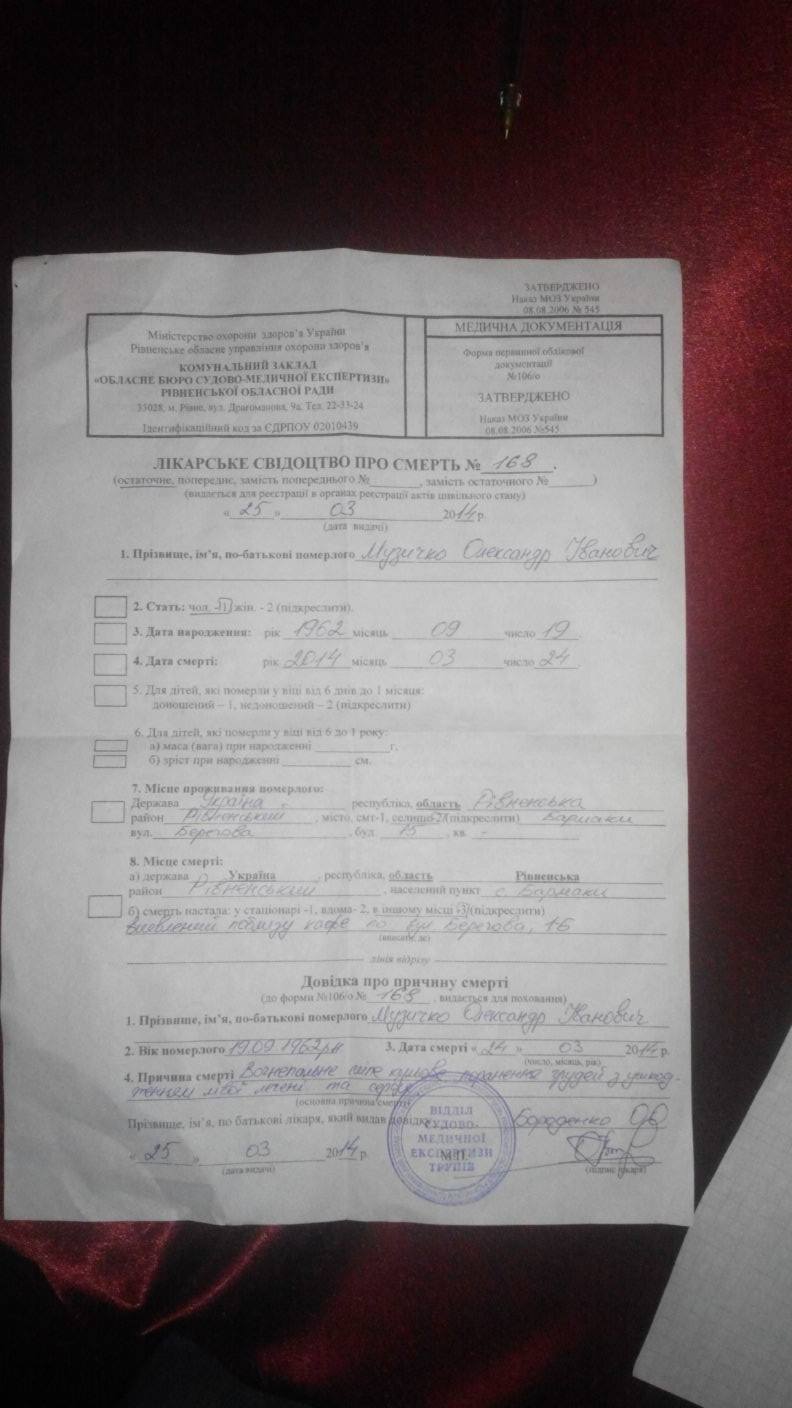 ЗАТВЕРДЖЕНО
Наказ МОЗ України
08.08.2006 № 545
Міністерство охорони здоров'я України
Рівненське обласне управління охорони здоров'я
КОМУНАЛЬНИЙ ЗАКЛАД
«ОБЛАСНЕ БЮРО СУДОВО-МЕДИЧНОЇ ЕКСПЕРТИЗИ»
РІВНЕНСЬКОЇ ОБЛАСНОЇ РАДИ
33028, м. Рівне, вул. Драгоманова, 9а. Тел. 22-33-24
Ідентифікаційний код за ЄДРПОУ 02010439
МЕДИЧНА ДОКУМЕНТАЦІЯ
Форма первинної облікової
документації
№106/о
ЗАТВЕРДЖЕНО
Наказ МОЗ України
08.08.2006 №545
ЛІКАРСЬКЕ СВІДОЦТВО ПРО СМЕРТЬ № 168.
(остаточне, попереднє, замість попереднього №______, замість остаточного №______)
(видається для реєстрації в органах реєстрації актів цивільного стану)
« 25 » 03 2014 р.
(дата видачі)
1. Прізвище, ім'я, по-батькові померлого Музичко Олександр Іванович
2. Стать: чол. -1, жін. - 2 (підкреслити).
3. Дата народження: рік 1962 місяць 09 число 19
4. Дата смерті: рік 2014 місяць 03 число 24.
5. Для дітей, які померли у віці від 6 днів до 1 місяця:
доношений – 1, недоношений – 2 (підкреслити)
6. Для дітей, які померли у віці від 6 до 1 року:
а) маса (вага) при народженні ________ г.
б) зріст при народженні ________ см.
7. Місце проживання померлого:
Держава Україна республіка, область Рівненська
район Рівненський, місто, смт-1, селищо-2 (підкреслити) Бармаки
вул. Берегова, буд. 15, кв. -
8. Місце смерті:
а) держава Україна, республіка, область Рівненська
район Рівненський, населений пункт с. Бармаки
б) смерть настала: у стаціонарі -1, вдома- 2, в іншому місці -3 (підкреслити)
виявлений поблизу кафе по вул Берегова, 1Б
(вписати, де)
лінія відрізу
Довідка про причину смерті
(до форми №106/о № 168, видається для поховання)
1. Прізвище, ім'я, по-батькові померлого Музичко Олександр Іванович
2. Вік померлого 19.09.1962рн 3. Дата смерті « 24 » 03 2014 р.
(число, місяць, рік)
4. Причина смерті Вогнепальне сліпе кульове поранення грудей з ушкод-
женням лівої легені та серця.
(основна причина смерті)
Прізвище, ім'я, по батькові лікаря, який видав довідку Бороденко
« 25 » 03 2014 р. М.П.
(дата видачі) (підпис лікаря)
ВІДДІЛ
СУДОВО-
МЕДИЧНОЇ
ЕКСПЕРТИЗИ
ТРУПІВ